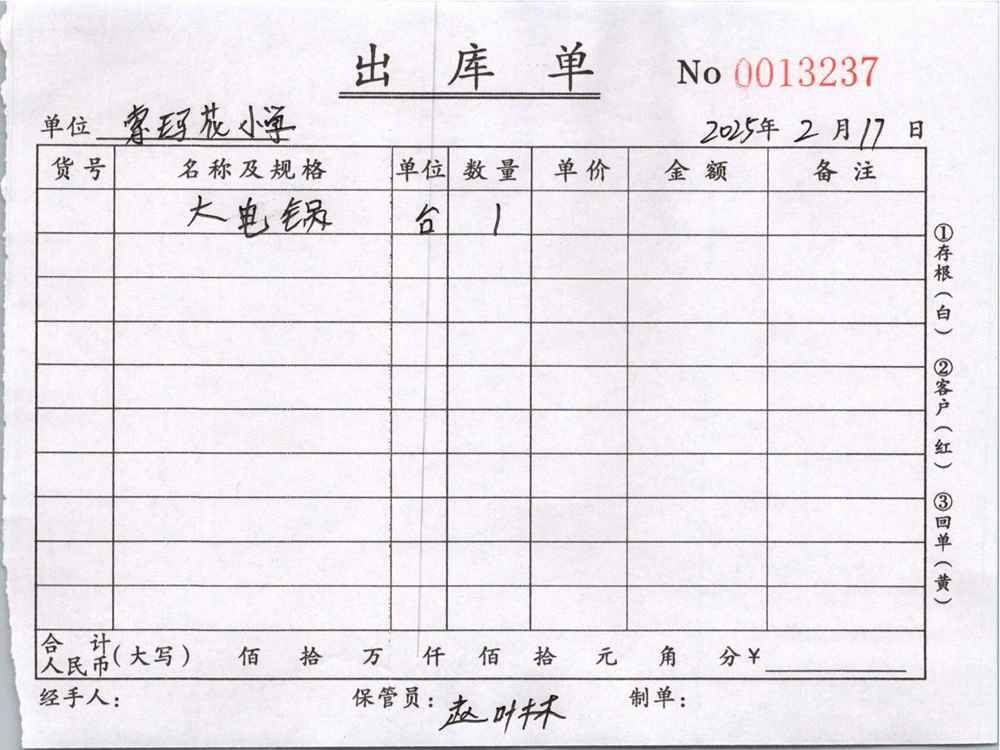 出库单
No 0013237
单位 索玛花小学
2025年 2月17日
货号 名称及规格 单位 数量 单价 金额 备注
大电锅 台 1
①存根(白) ②客户(红) ③回单(黄)
合计
人民币(大写) 佰 拾 万 仟 佰 拾 元 角 分¥
经手人: 保管员:赵叶林 制单: